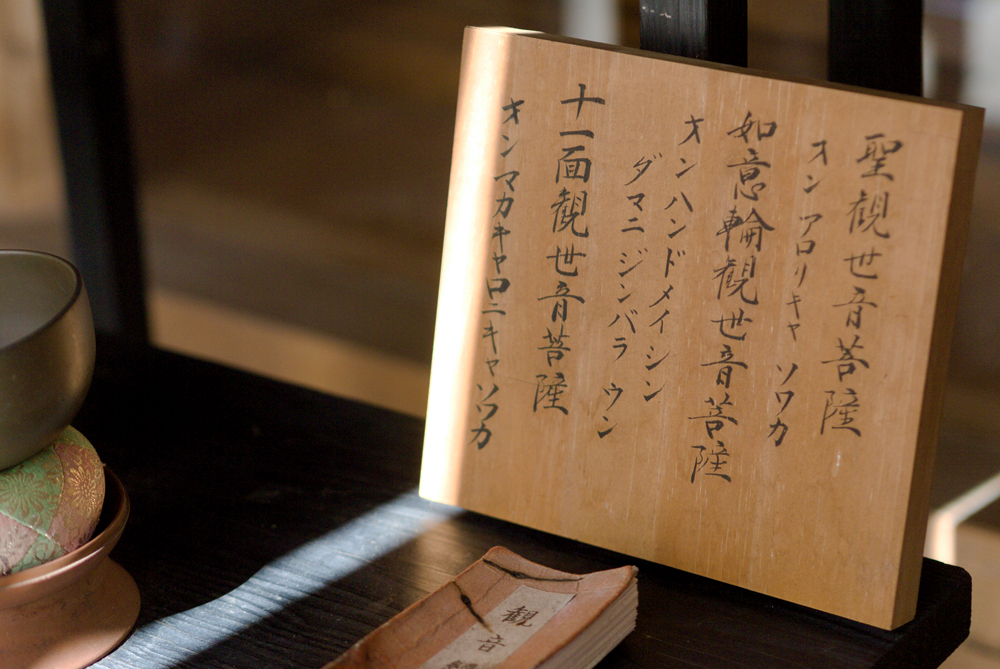 聖観世音菩薩
オン アロリキャ ソワカ
如意輪観世音菩薩
オン ハンドメイシン
ダマニ ジンバラ ウン
十一面観世音菩薩
オンマカキャロニキャソワカ
観音